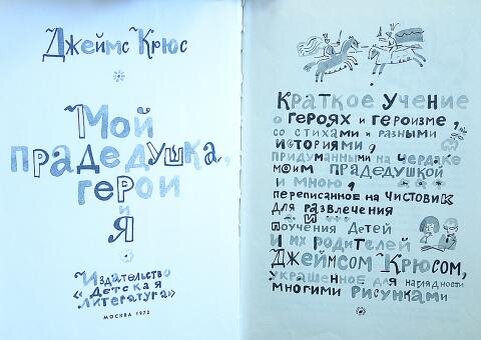 Джеймс Крюс
Мой
прадедушка,
герои
и
Я
Издательство
«Детская
литература»
МОСКВА 1972
Краткое учение
о героях и героизме,
со стихами и разными
историями,
придуманными на чердаке
моим прадедушкой
и мною,
переписанное на чистовик
для развлечения
и
поучения детей
и их родителей
Джеймсом Крюсом,
украшенное для наглядности
многими рисунками